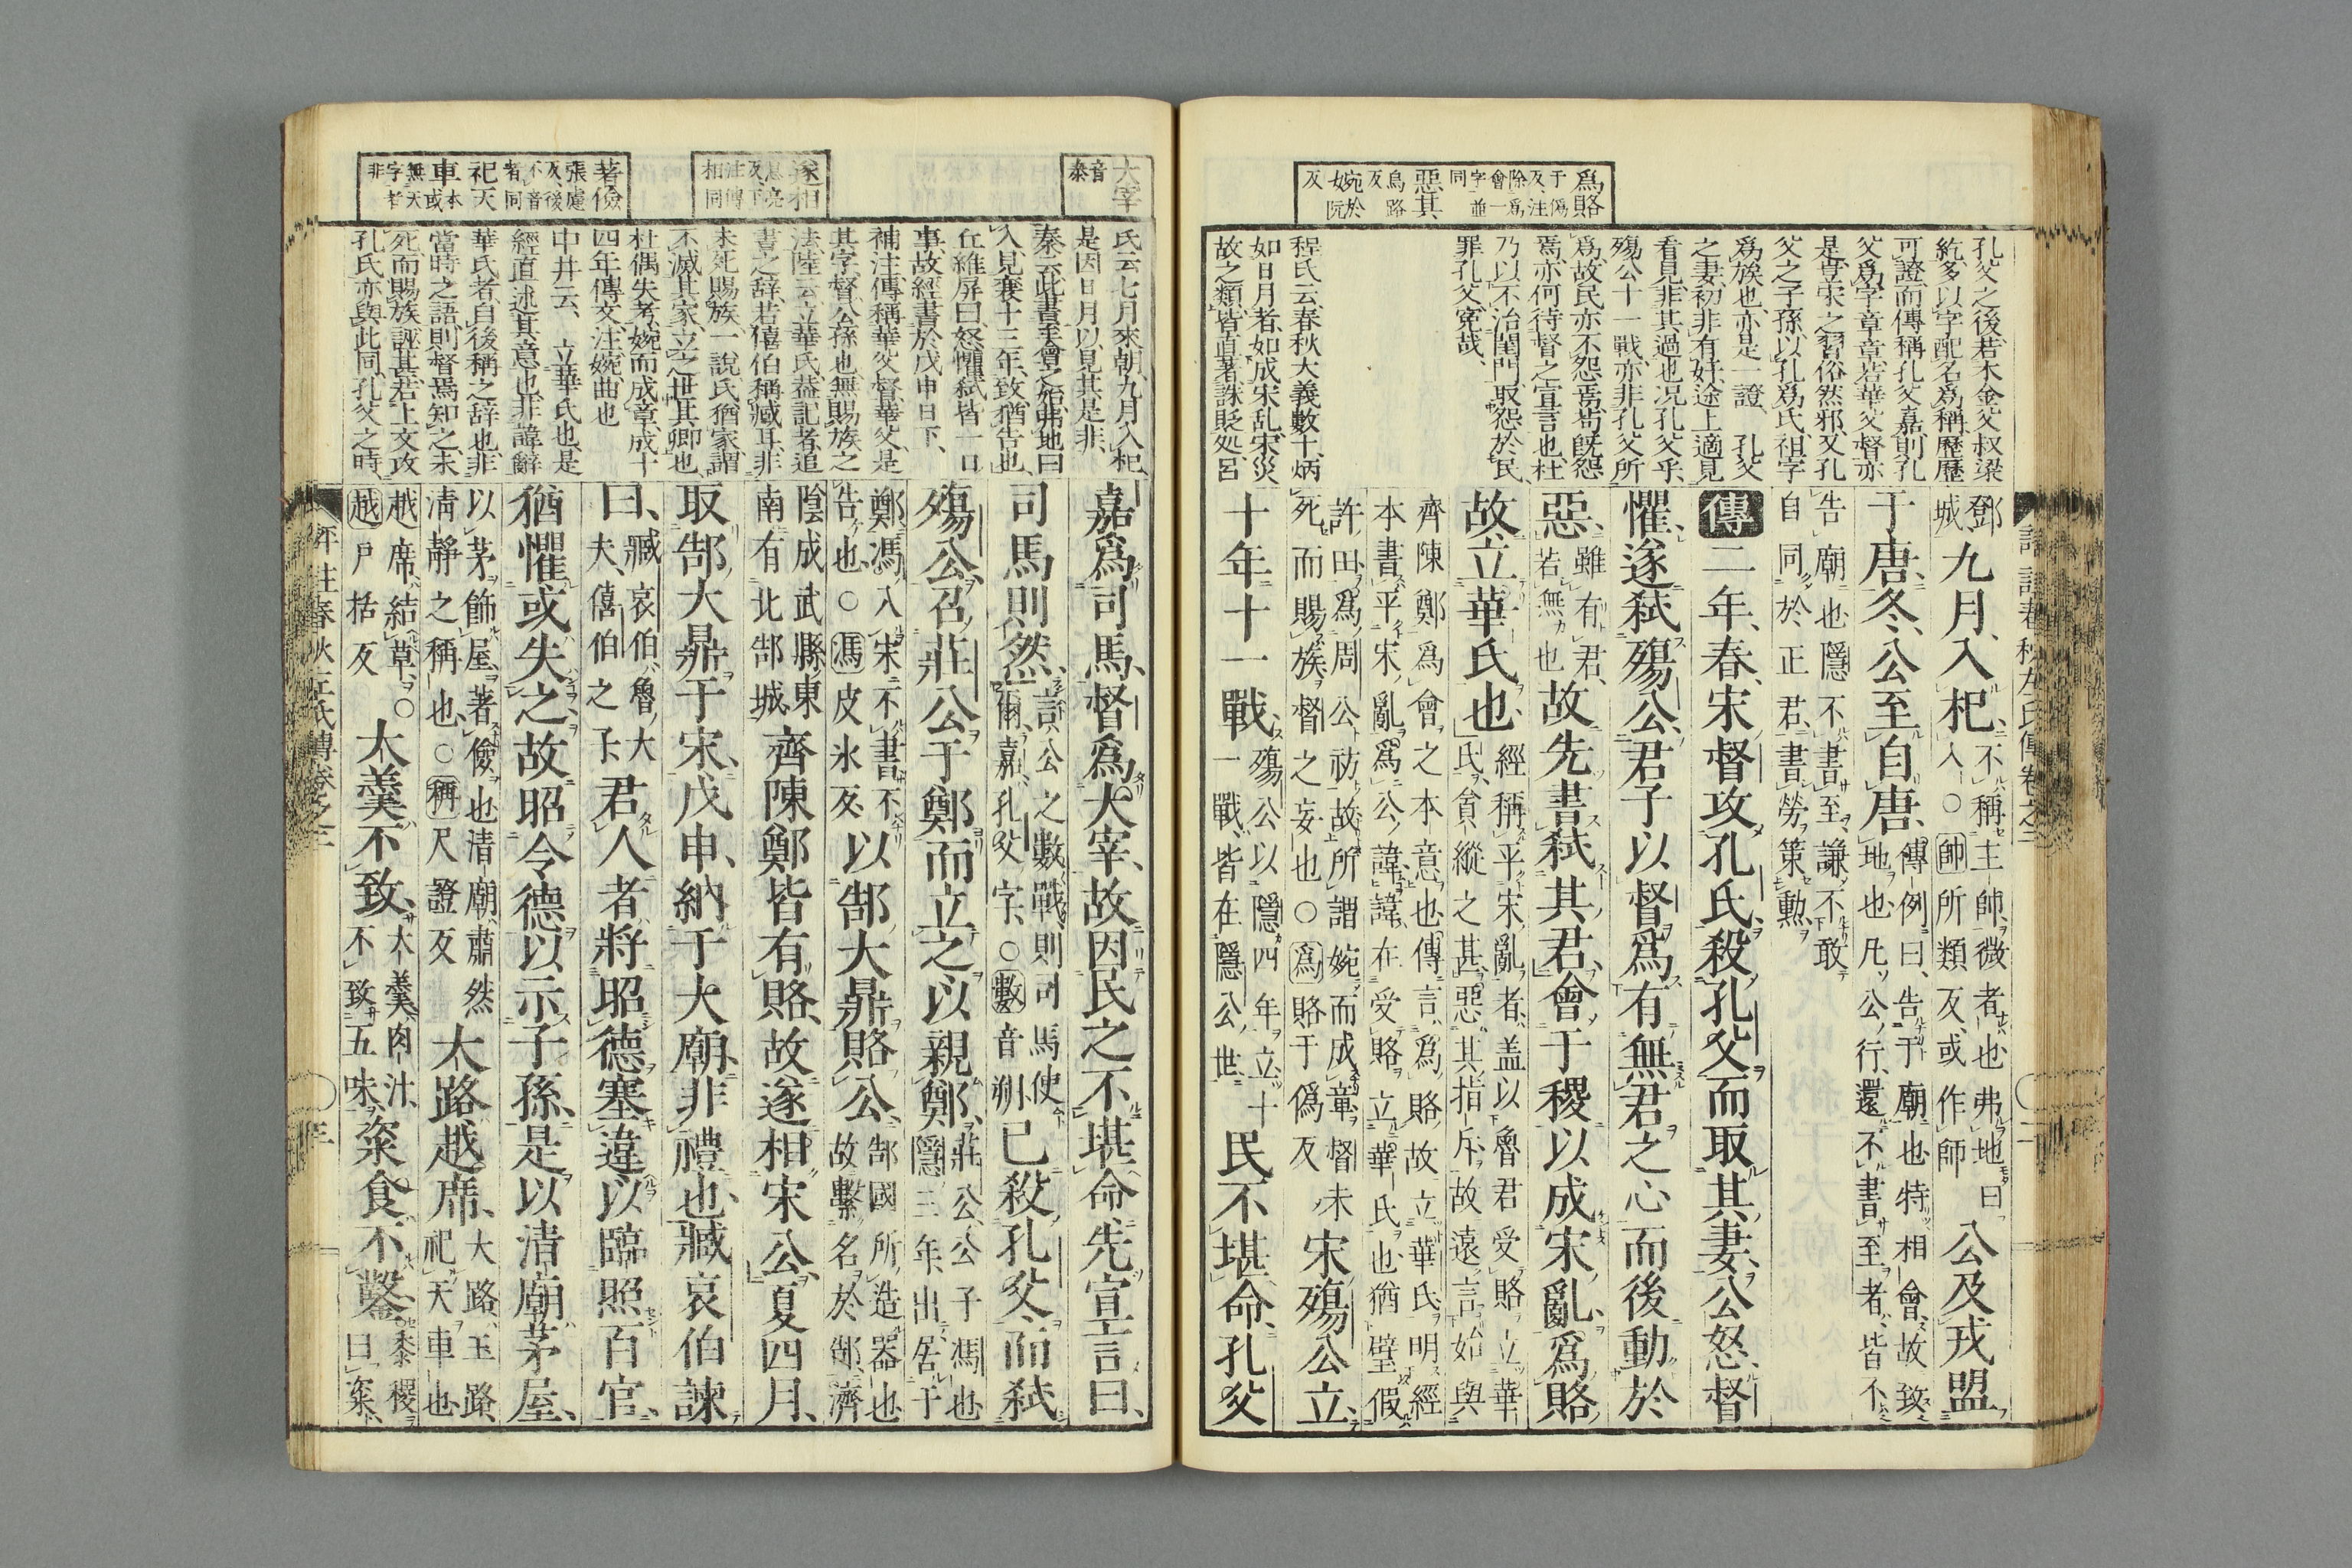 爲賂 于僞反注除爲會一字並同 惡其 烏路反 婉 於阮反
孔父之後若木金父叔梁
紇多以字配名爲稱歷歷
可證而傳稱孔父嘉則孔
父爲字章章若華父督亦
是豈宋之習俗然邪又孔
父之子孫以孔爲氏祖字
爲族也亦是一證 孔父
之妻初非有奸途上適見
看見非其過也况孔父乎
殤公十一戰亦非孔父所
爲故民亦不怨焉苟既怨
焉亦何待督之宣言也杜
乃以不治閨門取怨於民
罪孔父寃哉
程氏云春秋大義數十炳
如日月者如成宋乱宋災
故之類皆直著誅貶処呂
鄧城 九月入杞 不稱主帥微者也弗地曰入○帥所類反或作師 公及戎盟
于唐冬公至自唐 傳例曰告于廟也特相會故致地也凡公行還不書至者皆不
告廟也隱不書至謙不敢自同於正君書勞策勲
傳 二年春宋督攻孔氏殺孔父而取其妻公怒督
懼遂弑殤公君子以督爲有無君之心而後動於
惡 雖有君若無也 故先書弑其君會于稷以成宋亂爲賂
故立華氏也 經稱平宋亂者盖以魯君受賂立華氏貪縱之甚惡其指斥故遠言始與
齊陳鄭爲會之本意也傳言爲賂故立華氏明經本書平宋亂爲公諱諱在受賂立華氏也猶璧假
許田爲周公祊故所謂婉而成章督未死而賜族督之妄也○爲賂于僞反 宋殤公立
十年十一戰 殤公以隱四年立十一戰皆在隱公世 民不堪命孔父
大宰 音泰
遂相 息亮反下注傳相同
著儉 張慮反後不音者同 祀天車 本或無天字者非
氏云七月來朝九月入杞
是因日月以見其是非
秦云此書手會之始弗地曰
入見襄十三年致猶告也
丘維屏曰怒懼弑皆一日
事故經書於戊申日下
補注傳稱華父督華父是
其字督公孫也無賜族之
法陸云立華氏益記者追
書之辞若僖伯稱臧耳非
未死賜族一說氏猶家謂
不滅其家立之世其卿也
杜偶失考婉而成章成十
四年傳文注婉曲也
中井云 立華氏也是
經直述其意也非諱辭
華氏者自後稱之辞也非
當時之語則督焉知之未
死而賜族誣甚若上文攻
孔氏亦與此同孔父之時
嘉爲司馬督爲大宰故因民之不堪命先宣言曰
司馬則然 言公之數戰則司馬使爾嘉孔父字○數音朔 已殺孔父而弑
殤公召莊公于鄭而立之以親鄭 莊公公子馮也隱三年出居于
鄭馮入宋不書不告也○馮皮氷反 以郜大鼎賂公 郜國所造器也故繫名於郜濟
陰成武縣東南有北郜城 齊陳鄭皆有賂故遂相宋公夏四月
取郜大鼎于宋戊申納于大廟非禮也臧哀伯諫
曰 臧哀伯魯大夫僖伯之子 君人者將昭德塞違以臨照百官
猶懼或失之故昭令德以示子孫是以清廟茅屋
以茅飾屋著儉也清廟肅然清靜之稱也○稱尺證反 大路越席 大路玉路祀天車也
越席結草○越戸括反 大羹不致 大羹肉汁不致五味 粢食不鑿 黍稷曰粢